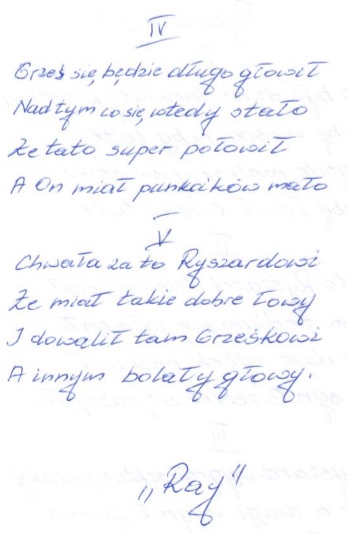 IV
Grześ się będzie długo głowił
Nad tym co się wtedy stało
Że tato super połowił
A On miał punkcików mało
V
Chwała za to Ryszardowi
Że miał takie dobre łowy
I dowalił tam Grześkowi
A innym bolały głowy.
„Ray"